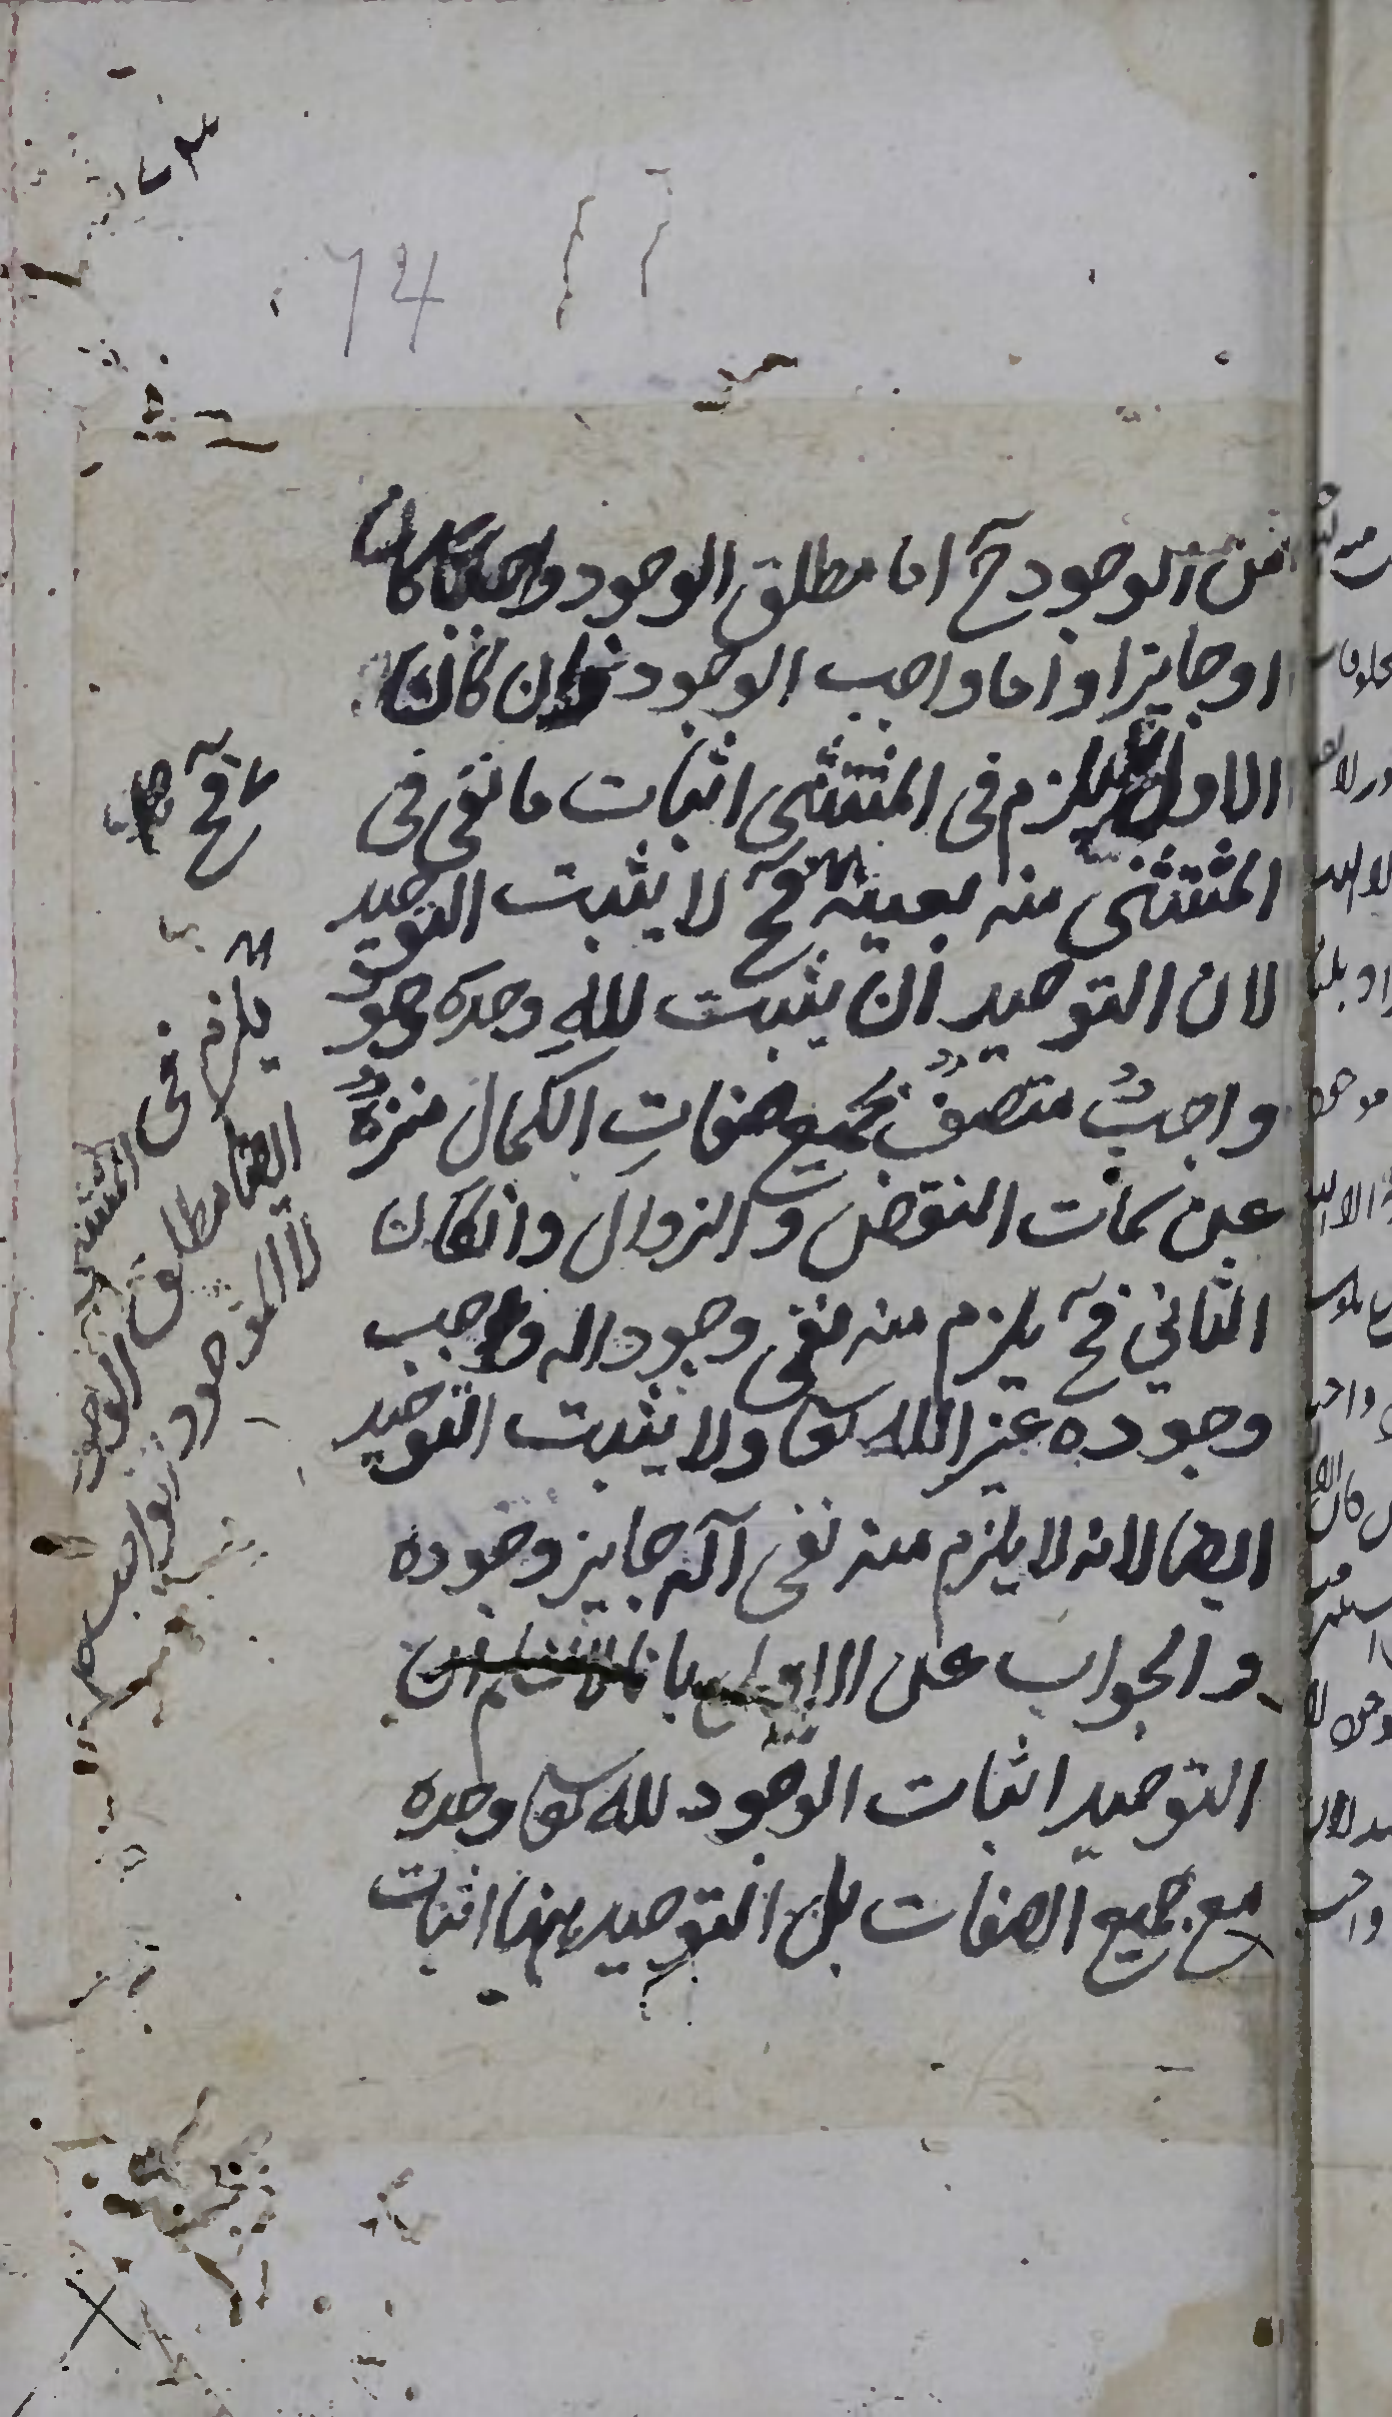 74
من الوجود ح اما مطلق الوجود واجبا كان
او جايزا واما واجب الوجود فان كان
الاول يلزم فى المستثنى اثبات ما نفى فى
المستثنى منه بعينه فح لا يثبت التوحيد
لان التوحيد ان يثبت لله وحده وجود
واجب متصف بجميع صفات الكمال منزه
عن سمات النقض والزوال وان كان
الثاني فح يلزم منه نفى وجود اله واجب
وجوده غير الله تعا ولا يثبت التوحيد
ايضا لانه لا يلزم منه نفى آله جايز وجوده
والجواب عن الاول بانا لا نسلم ان
التوحيد اثبات الوجود لله تعا وحده
مع جميع الصفات بل التوحيد ههنا اثبات
فح
يلزم فى المستثنى
ايضا مطلق الوجود